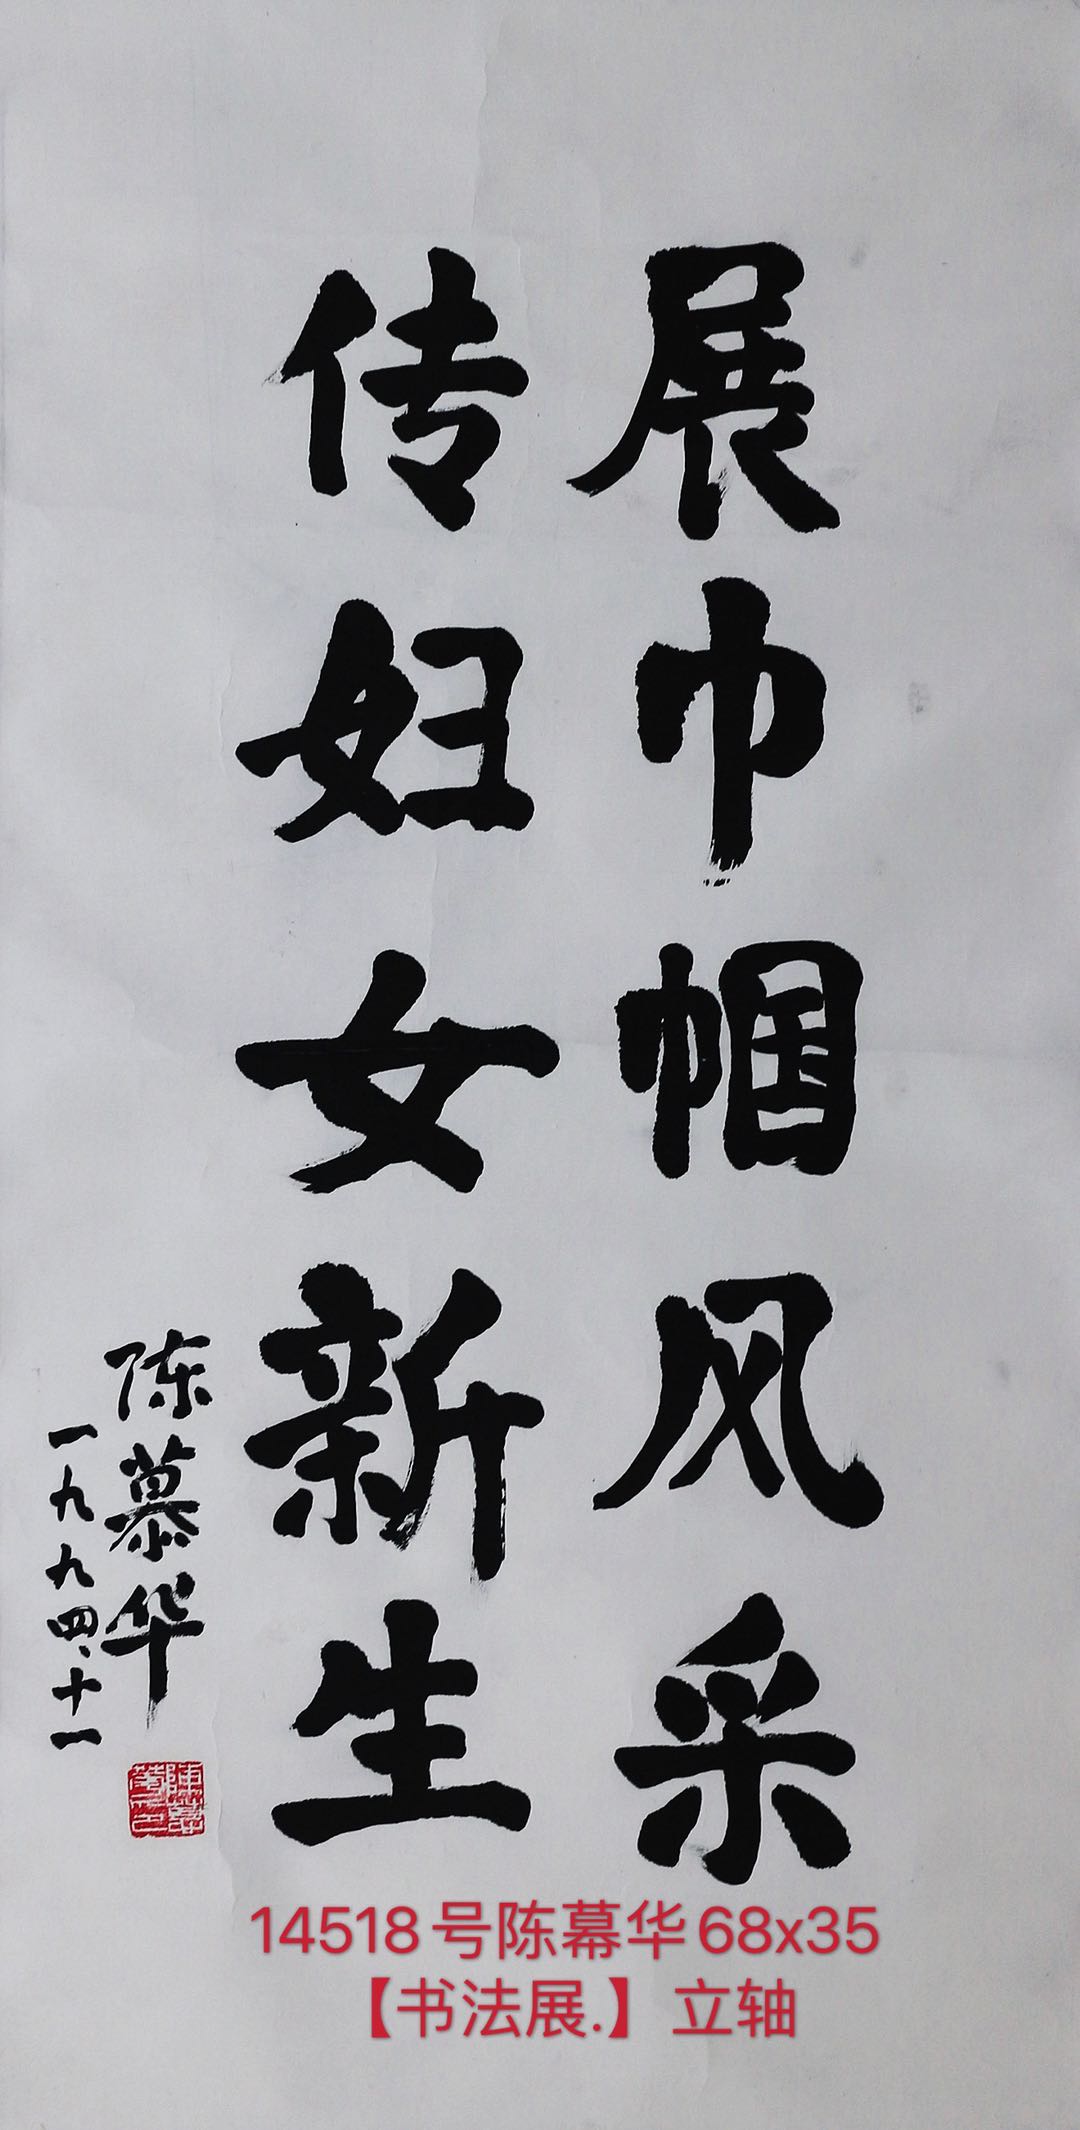 展巾帼风采
传妇女新生
陈慕华
一九九四、十一
14518号陈幕华68x35
【书法展.】立轴